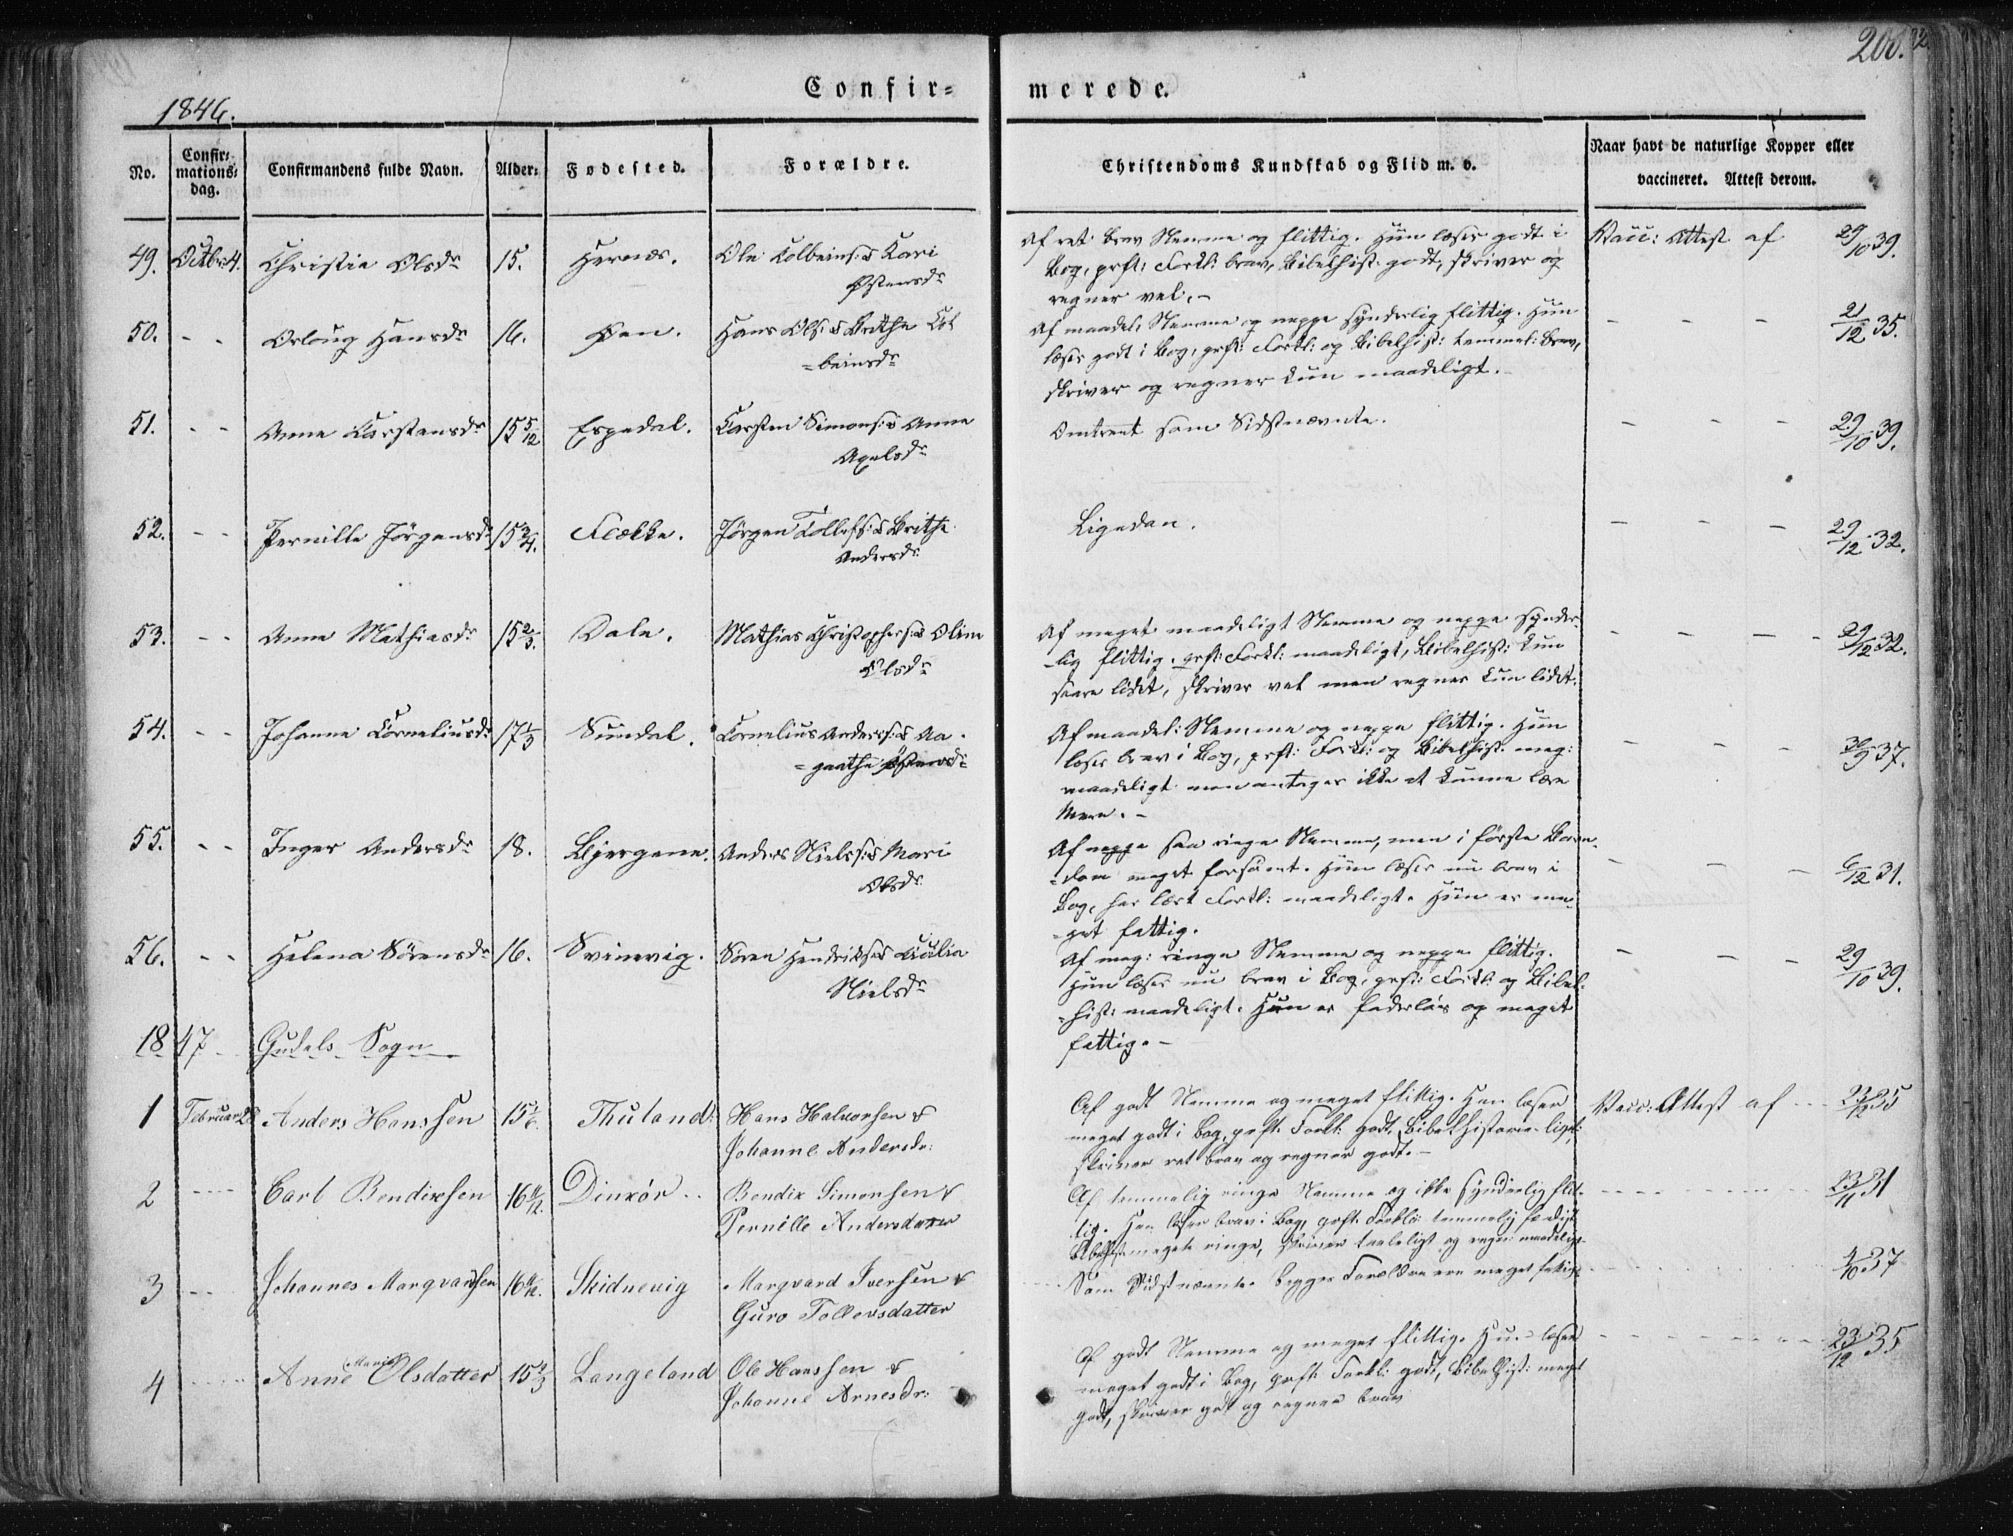 200.
1846.
Confir=
merede.
No.
Confir=
mations=
dag.
Confirmandens fulde Navn.
Alder:
Fødested.
Forældre.
Christendoms Kundskab og Flid m. v.
Naar havt de naturlige Kopper eller
vaccineret. Attest derom.
49. Octbr 4. Christie Olsdr 15. Hernæs. Ole Colbeins: & Kari
Østensdr
Af ret brav Nemme og flittig. Hun læser godt i
Bog, prst: Forkl: brav, Bibelhist. godt, skriver og
regner vel. -
Vacc: Attest af 29/10 39.
50. - - Orloug Hansdr 16. Høen. Hans Ols: & Brithe Col
=beinsdr
Af maadel: Nemme og neppe synderlig flittig. Hun
læser godt i Bog, prst: Forkl: og Bibelhist: temmel: brav,
skriver og regner kun maadeligt.
- - - 21/12 35.
51. - - Anne Carstensdr 15 5/12 Espedal. Carsten Simons: & Anne
Axelsdr
Omtrent som Sidstnævnte.
- - - 29/10 39.
52. - - Pernille Jørgensdr 15 3/4. Flække. Jørgen Tollefs: & Brithe
Andersdr.
Ligedan.
- - - 29/12 32.
53. - - Anne Mathiasdr 15 2/3. Dale. Mathias Christophers: & Oline
Olsdr
Af meget maadeligt Nemme og neppe synder=
=lig flittig. prst: Forkl: maadeligt, Bibelhist: kun
saare lidet, skriver vel men regner kun lidet.
- - - - 29/12 32.
54. - - Johanne Corneliusdr 17 1/3 Sundal. Cornelius Anders: & Aa=
=gaathe Østensdr
Af maadel: Nemme og neppe flittig. Hun
læser brav i Bog, prst: Forkl: og Bibelhist. meg:
maadeligt men antages ikke at kunne lære
Mere. -
- - - 30/9 37.
55. - - Inger Andersdr 18. Bjergene. Anders Niels: & Mari
Olsdr
Af neppe saa ringe Nemme, men i første Barn=
=dom meget forsømt. Hun læser nu brav i
Bog, har lært Forkl: maadeligt. Hun er me=
=get fattig.
- - - 6/12 31.
56. - - Helena Sørensdr 16. Svinevig. Søren Hendriks: & Cicilia
Nielsdr
Af meg: ringe Nemme og neppe flittig.
Hun læser nu brav i Bog, prst: Forkl: og Bibel=
=hist: maadeligt. Hun er faderløs og meget
fattig. -
- - - 29/10 39.
1847 Gudels Sogn
1 Februar 28 Anders Hanssen 15 1/6. Thuland: Hans Halvorsen &
Johanne Andersdr:
Af godt Nemme og meget flittig. Han læser
meget godt i Bog, prst. Forkl: godt, Bibelhistorie lige
skriver ret brav og regner godt. -
Vacc: Attest af - - 23/12 35
2 - - - Carl Bendixsen 16 11/12. Dinxør - - Bendix Simonsen &
Pernille Andersdatter
Af temmelig ringe Nemme og ikke synderlig flit=
tig. Han læser brav i Bog, prst. Forkl:
meget ringe, skriver taaleligt og regner maadeligt
- - - 23/11 31
3 - - - Johannes Marqvardsen Skidnevig Marqvard Iversen &
Guro Tollevsdatter
Som Sidstnævnte. begge Forældre ere meget fattige
- - - 4/10 37
4 - - - Anne Marie Olsdatter 15 2/3 Langeland Ole Hanssen &
Johanne Arnesdr:
Af godt Nemme og meget flittig. Hun læser
meget godt i Bog, prst. Forkl: godt, Bibelhist: meget
godt, skriver godt og regner brav
- - - 23/12 35